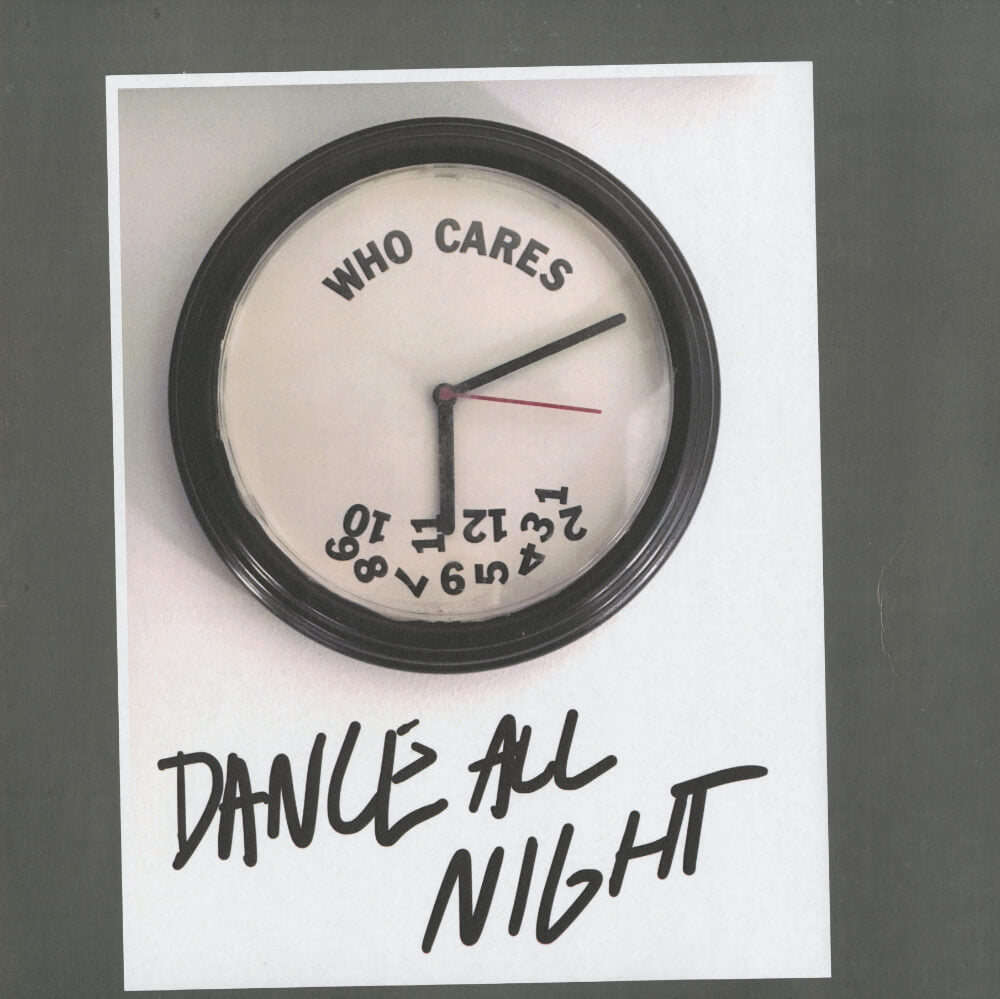 WHO CARES
10 11 12 1
9 8 7 6 5 4 3 2
DANCE ALL
NIGHT